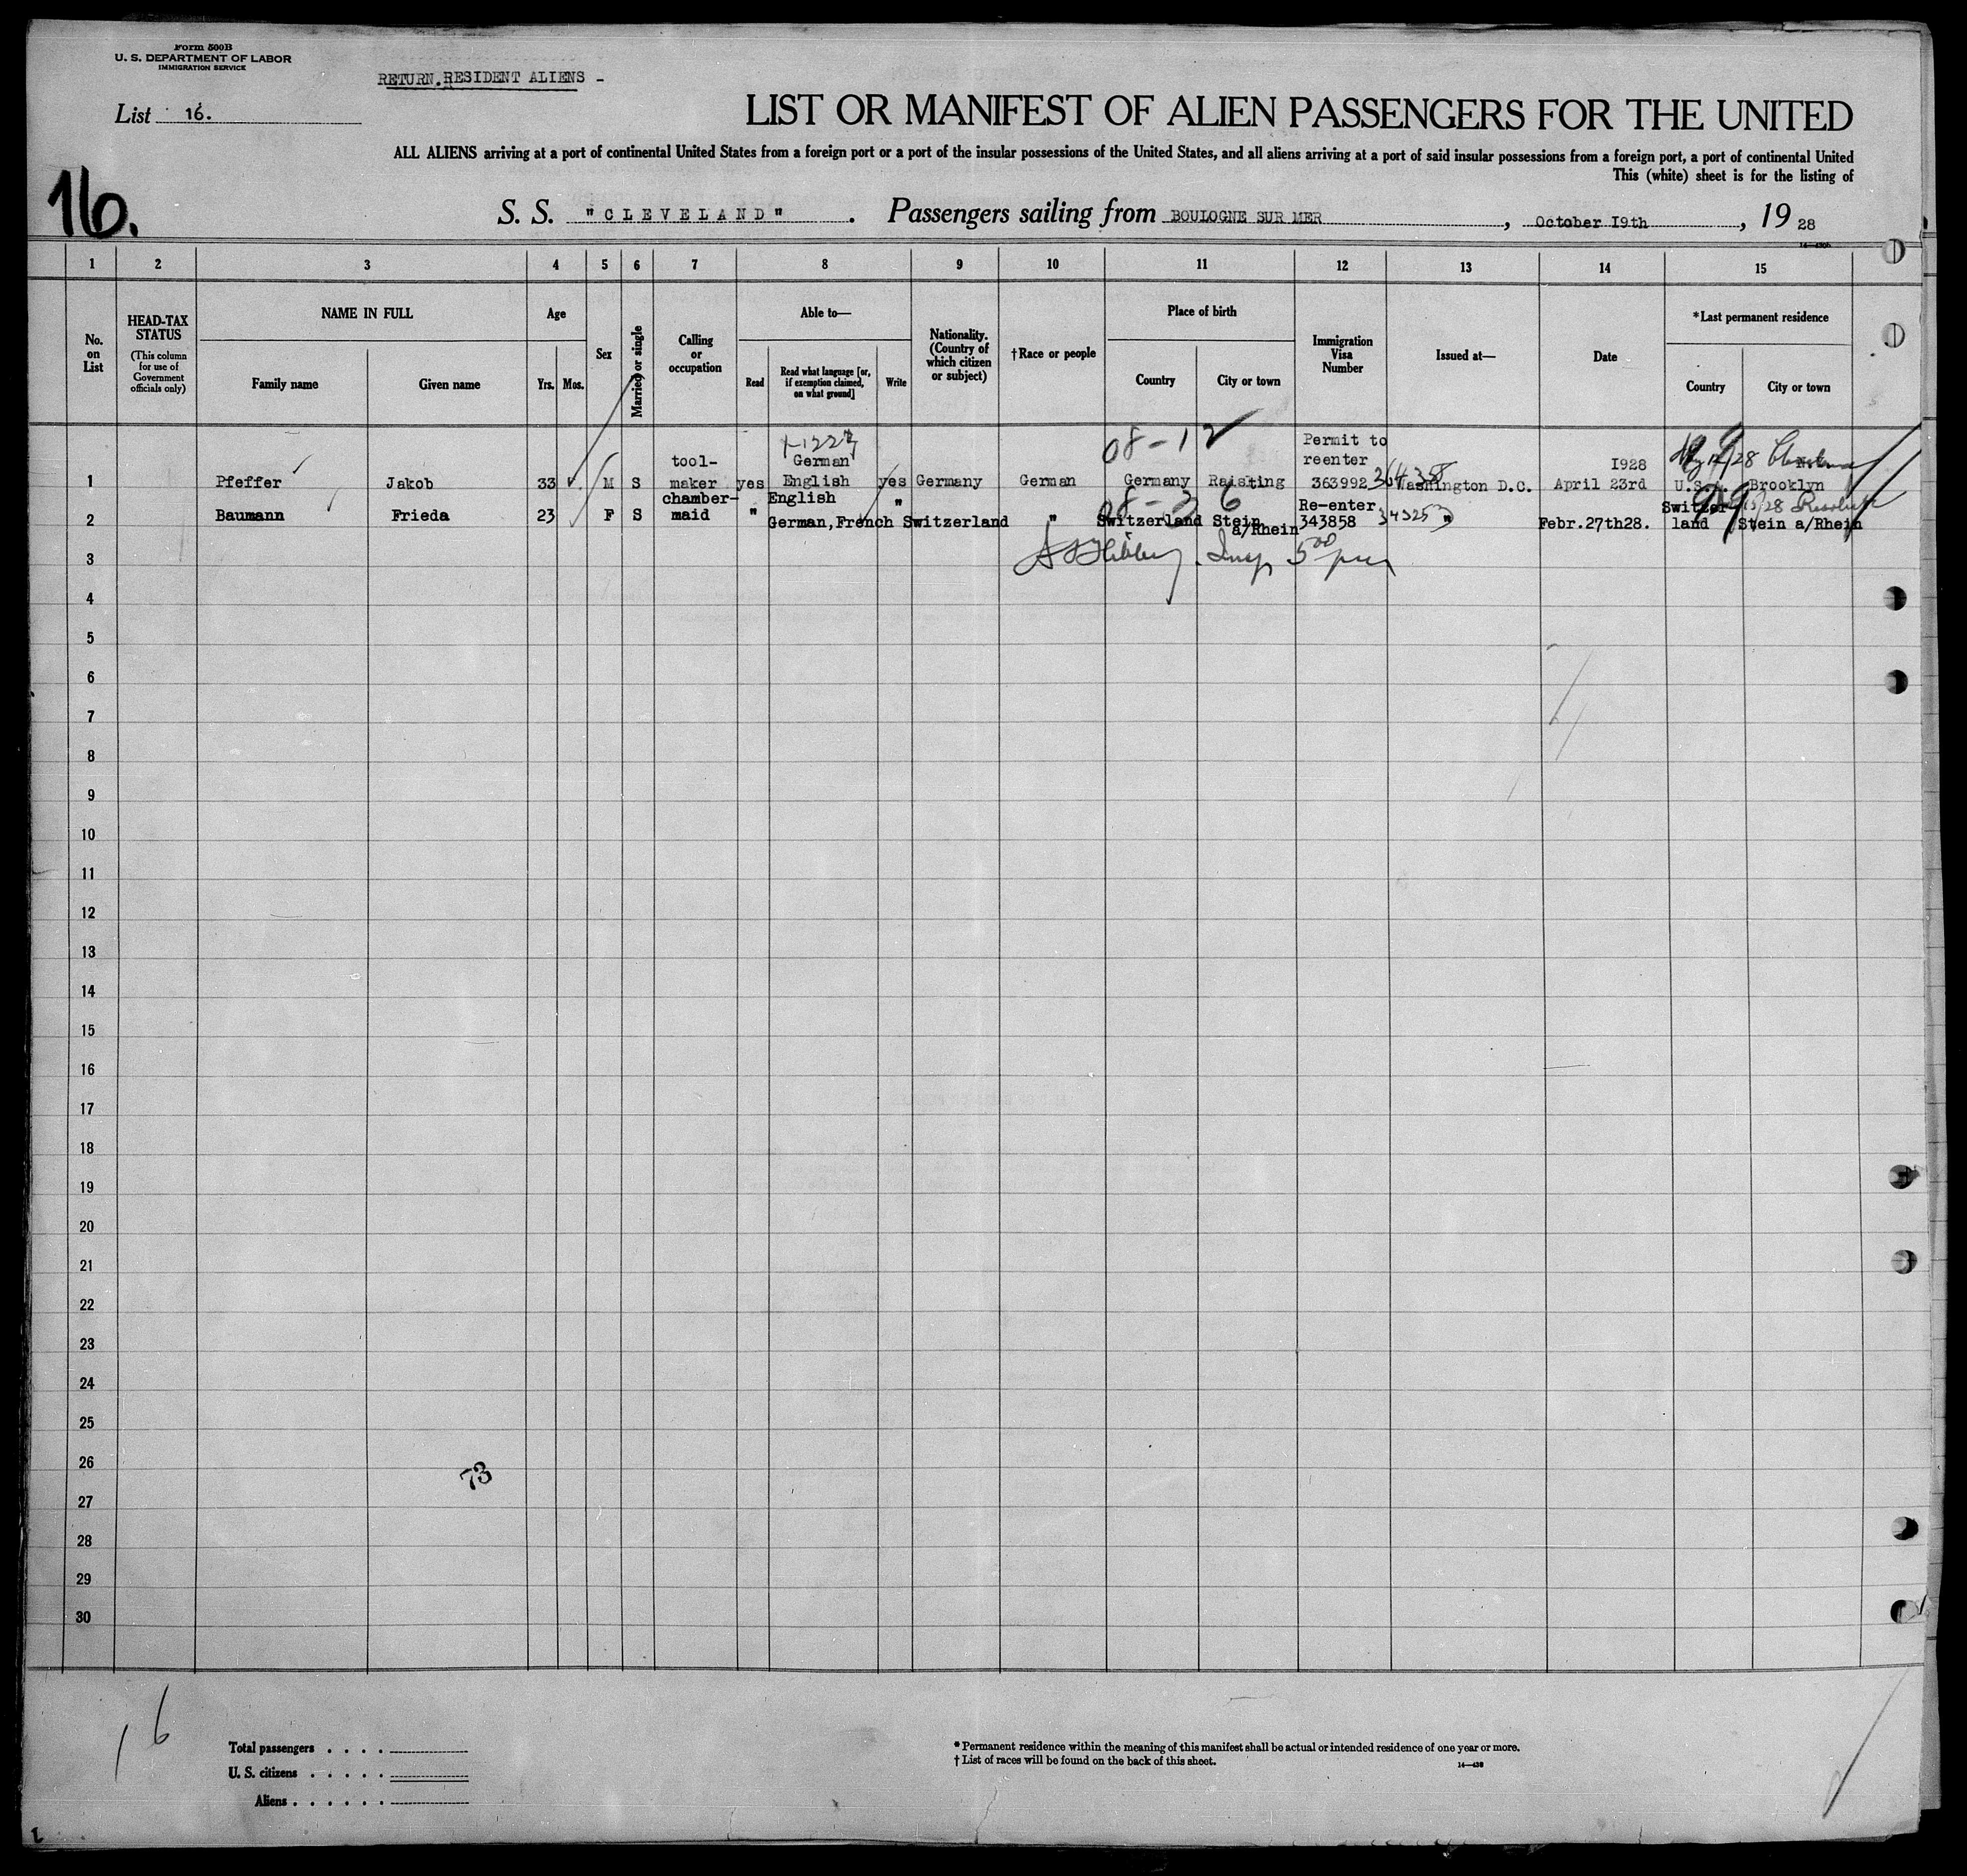 Form 500B
U. S. DEPARTMENT OF LABOR
IMMIGRATION SERVICE
RETURN.RESIDENT ALIENS -
List 16.
LIST OR MANIFEST OF ALIEN PASSENGERS FOR THE UNITED
ALL ALIENS arriving at a port of continental United States from a foreign port or a port of the insular possessions of the United States, and all aliens arriving at a port of said insular possessions from a foreign port, a port of continental United
This (white) sheet is for the listing of
16.
S. S. "CLEVELAND". Passengers sailing from BOULOGNE SUR MER, October I9th, 19 28
1 2 3 4 5 6 7 8 9 10 11 12 13 14 15
No. on List
HEAD-TAX STATUS
(This column for use of Government officials only)
NAME IN FULL
Family name
Given name
Age
Yrs.
Mos.
Sex
Married or single
Calling or occupation
Able to—
Read
Read what language [or, if exemption claimed, on what ground]
Write
Nationality. (Country of which citizen or subject)
†Race or people
Place of birth
Country
City or town
Immigration Visa Number
Issued at—
Date
*Last permanent residence
Country
City or town
08-12
1 Pfeffer Jakob 33 M S tool-maker yes German English yes Germany German Germany Raisting Permit to reenter 363992 Washington D.C. I928 April 23rd U.S.A. Brooklyn
08-3 6
2 Baumann Frieda 23 F S chamber-maid " English German,French " Switzerland " Switzerland Stein a/Rhein Re-enter 343858 " Febr.27th28. Switzer-land Stein a/Rhein
Insp 500 pm
3
4
5
6
7
8
9
10
11
12
13
14
15
16
17
18
19
20
21
22
23
24
25
26
73
27
28
29
30
16
Total passengers . . . .
U. S. citizens . . . . .
Aliens . . . . . .
* Permanent residence within the meaning of this manifest shall be actual or intended residence of one year or more.
† List of races will be found on the back of this sheet.